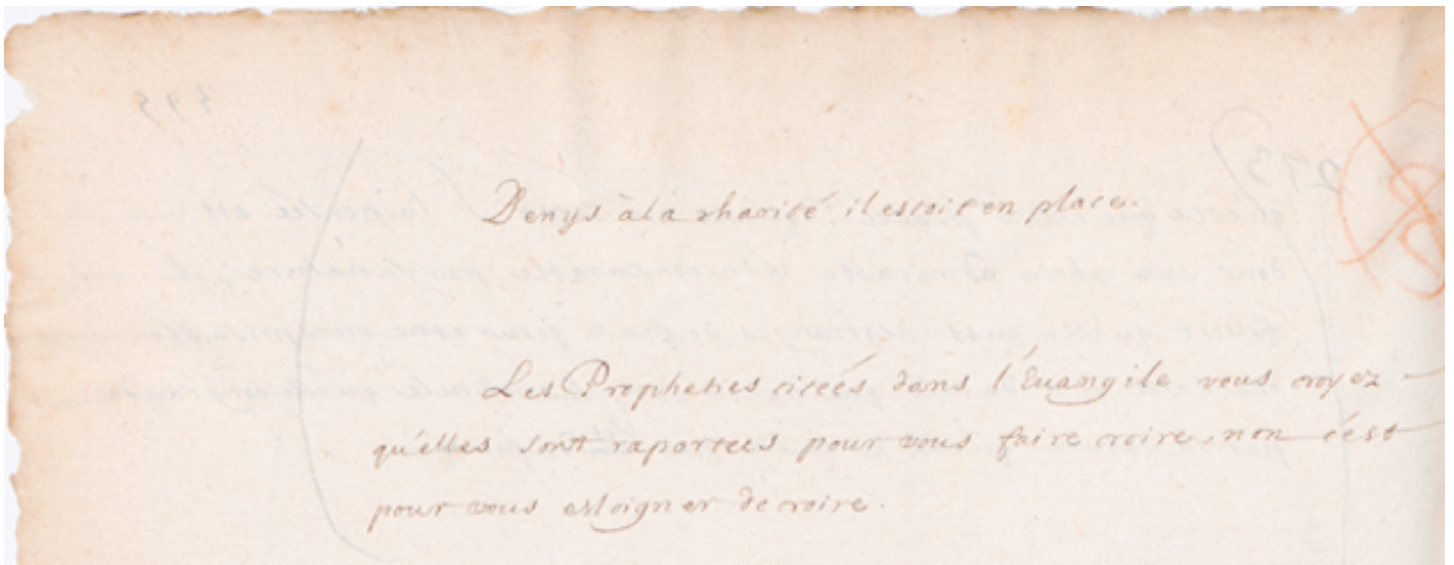 Denys à la charité il estoit en place.
Les Propheties citeés dans l'Euangile vous croyez
qu'elles sont raportees pour vous faire croire, non c'est
pour vous esloigner de croire.